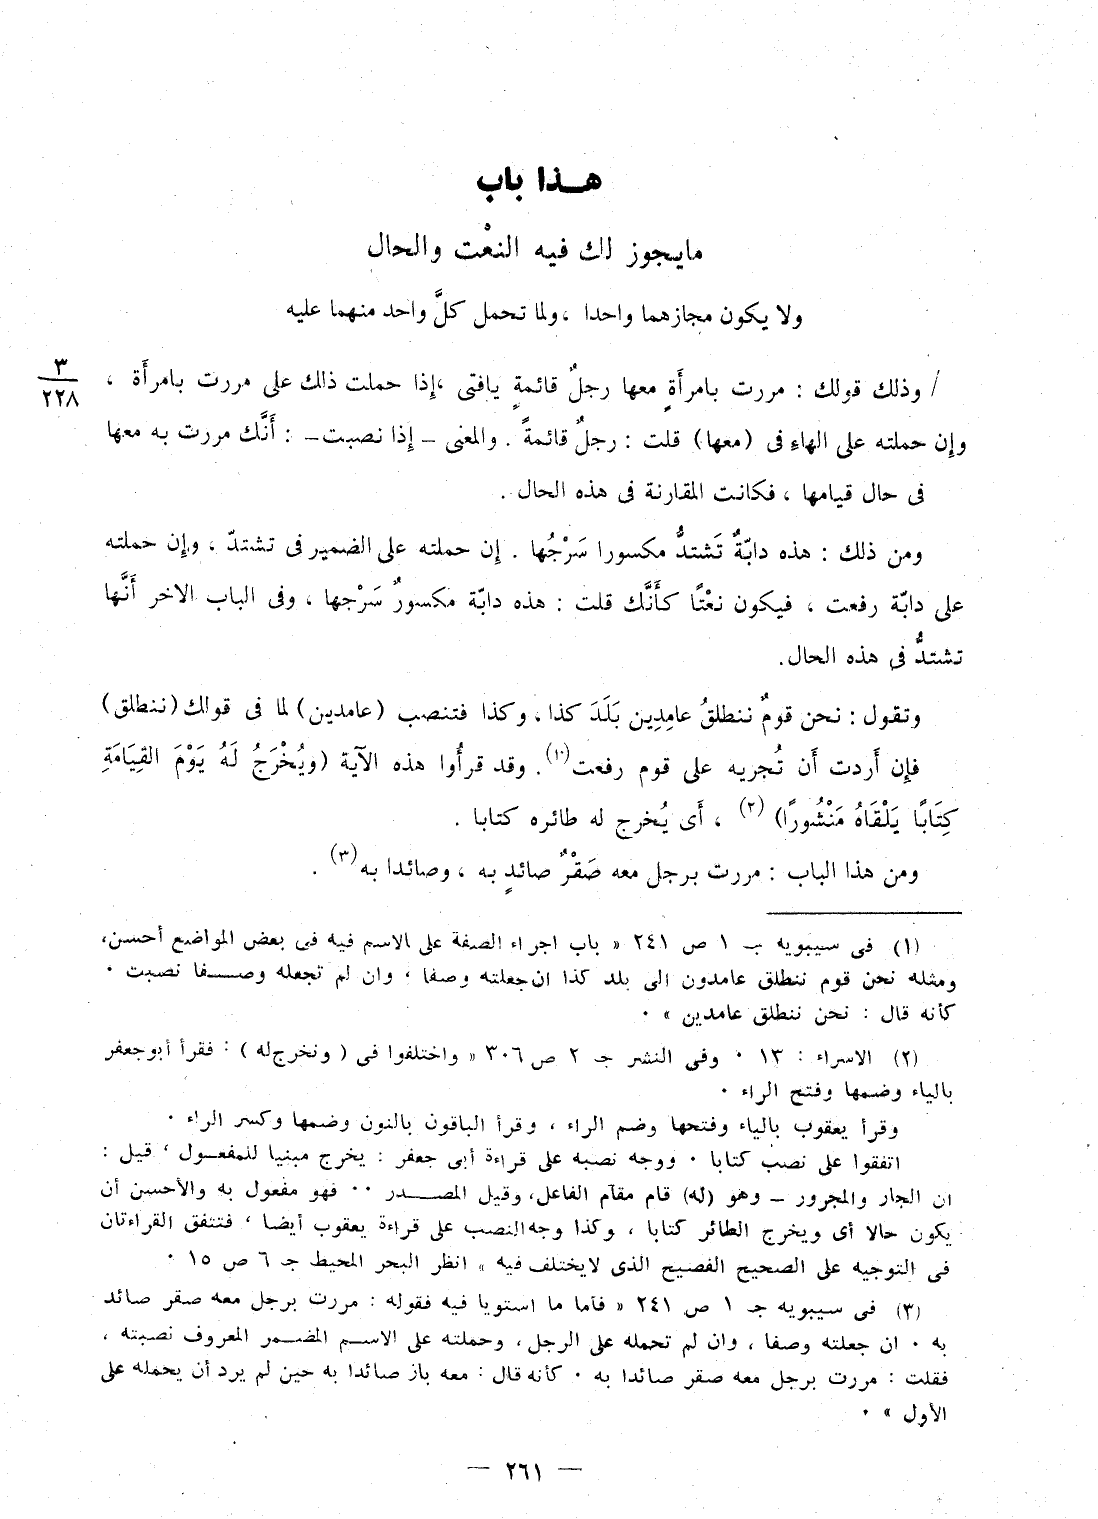 هـذا باب
مايجوز لك فيه النعْت والحال
ولا يكون مجازهما واحدا ، ولما تحمل كلَّ واحد منهما عليه
٣
٢٢٨
/ وذلك قولك : مررت بامرأَةٍ معها رجلٌ قائمةٍ يافتى ،إِذا حملت ذلك على مررت بامرأَة ،
وإِن حملته على الهاءِ فى (معها) قلت : رجلٌ قائمةً . والمعنى – إِذا نصبت– : أَنَّك مررت به معها
فى حال قيامها ، فكانت المقارنة فى هذه الحال .
ومن ذلك : هذه دابّةٌ تَشتدُّ مكسورا سَرْجُها . إِن حملته على الضمير فى تشتدّ ، وإِن حملته
على دابّة رفعت ، فيكون نعْتًا كأَنَّك قلت : هذه دابّة مكسورٌ سَرْجها ، وفى الباب الاخر أَنَّها
تشتدُّ فى هذه الحال.
وتقول : نحن قومٌ ننطلقُ عامِدِين بَلَدَ كذا ، وكذا فتنصب (عامدين) لما فى قولك (ننطلق)
فإِن أَردت أَن تُجريه على قوم رفعت(١) . وقد قرأُوا هذه الآية (ويُخْرَجُ لَهُ يَوْمَ القِيَامَةِ
كِتَابًا يَلْقَاهُ مَنْشُورًا) (٢) ، أَى يُخرج له طائره كتابا .
ومن هذا الباب : مررت برجل معه صَقْرٌ صائدٍ به ، وصائدا به(٣) .
(١) فى سيبويه جـ ١ ص ٢٤١ « باب اجراء الصفة على الاسم فيه فى بعض المواضع أحسن،
ومثله نحن قوم ننطلق عامدون الى بلد كذا ان جعلته وصفا ، وان لم تجعله وصـــفا نصبت ٠
كأنه قال : نحن ننطلق عامدين » ٠
(٢) الاسراء : ١٣ ٠ وفى النشر جـ ٢ ص ٣٠٦ « واختلفوا فى ( ونخرج له ) : فقرأ أبو جعفر
بالياء وضمها وفتح الراء ٠
وقرأ يعقوب بالياء وفتحها وضم الراء ، وقرأ الباقون بالنون وضمها وكسر الراء ٠
اتفقوا على نصب كتابا ٠ ووجه نصبه على قراءة أبى جعفر : يخرج مبنيا للمفعـول ، قيل :
ان الجار والمجرور – وهو (له) قام مقام الفاعل، وقيل المصـــدر ٠٠ فهو مفعول به والأحسن أن
يكون حالا أى ويخرج الطائر كتابا ، وكذا وجه النصب على قراءة يعقوب أيضا ، فتتفق القراءتان
فى التوجيه على الصحيح الفصيح الذى لايختلف فيه » انظر البحر المحيط جـ ٦ ص ١٥ ٠
(٣) فى سيبويه جـ ١ ص ٢٤١ « فأما ما استويا فيه فقوله : مررت برجل معه صقر صائد
به ٠ ان جعلته وصفا ، وان لم تحمله على الرجل، وحملته على الاسـم المضـمر المعروف نصبته ،
فقلت : مررت برجل معه صقر صائدا به ٠ كأنه قال : معه باز صائدا به حين لم يرد أن يحمله على
الأول » ٠
— ٢٦١ —